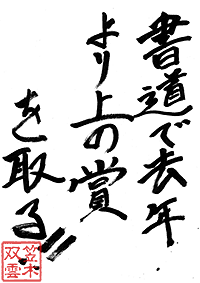 書道で去年
より上の賞
を取る!!
笠木
双雲